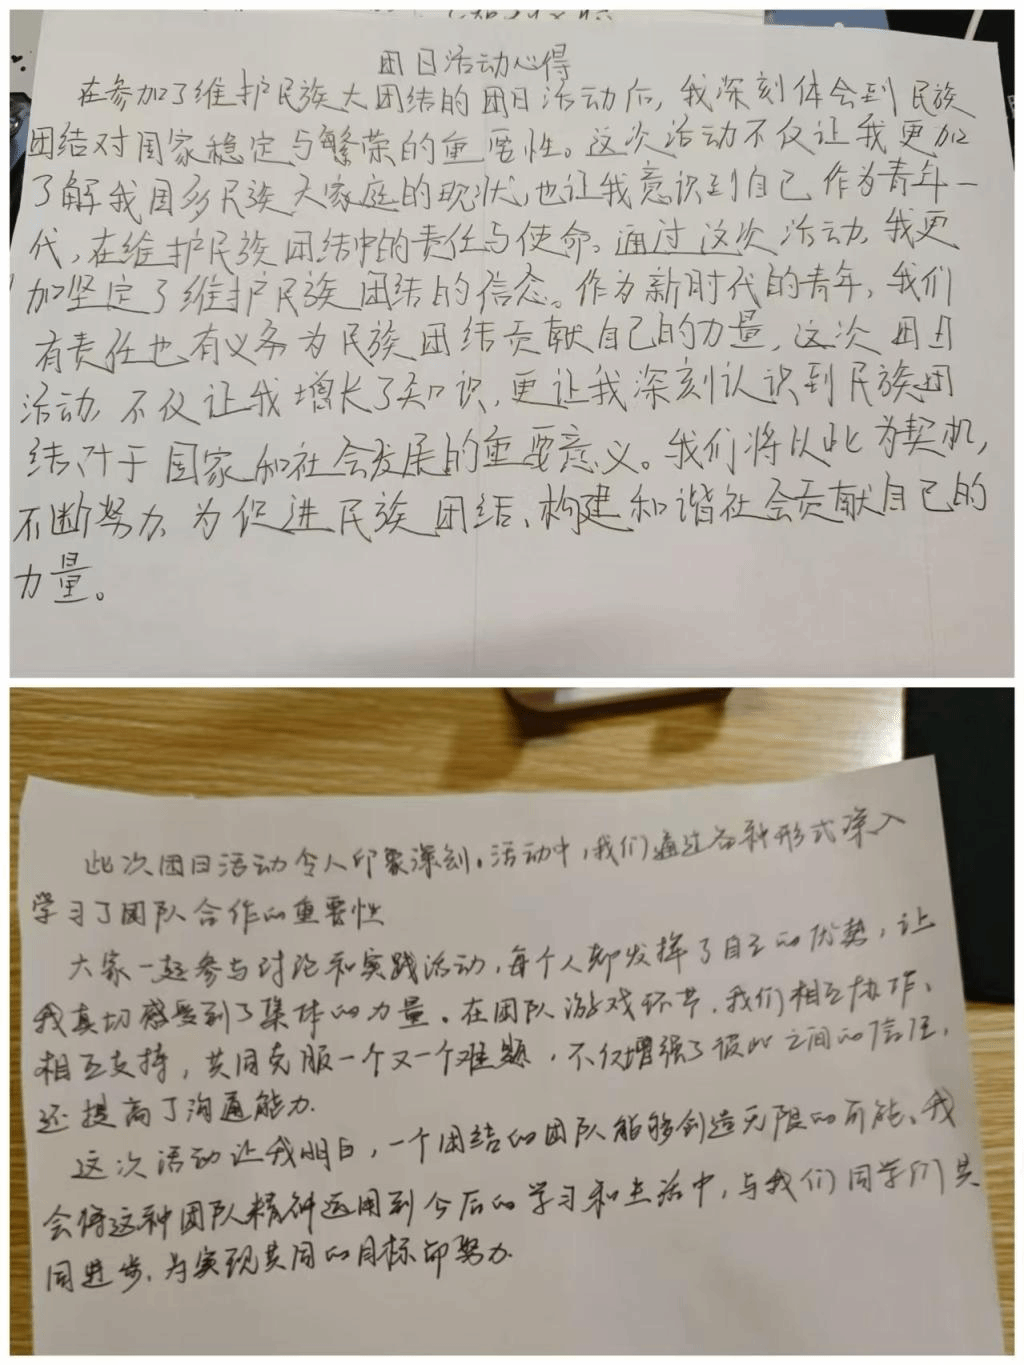 团日活动心得
在参加了维护民族大团结的团日活动后，我深刻体会到民族
团结对国家稳定与繁荣的重要性。这次活动不仅让我更加
了解我国多民族大家庭的现状，也让我意识到自己作为青年一
代，在维护民族团结中的责任与使命。通过这次活动，我更
加坚定了维护民族团结的信念。作为新时代的青年，我们
有责任也有义务为民族团结贡献自己的力量，这次团日
活动，不仅让我增长了知识，更让我深刻认识到民族团
结对于国家和社会发展的重要意义。我们将以此为契机，
不断努力，为促进民族团结、构建和谐社会贡献自己的
力量。
此次团日活动令人印象深刻。活动中，我们通过各种形式深入
学习了团队合作的重要性
大家一起参与讨论和实践活动，每个人都发挥了自己的优势，让
我真切感受到了集体的力量。在团队游戏环节，我们相互协作、
相互支持，共同克服一个又一个难题，不仅增强了彼此之间的信任，
还提高了沟通能力.
这次活动让我明白，一个团结的团队能够创造无限的可能、我
会将这种团队精神运用到今后的学习和生活中，与我们同学们共
同进步，为实现共同的目标而努力.